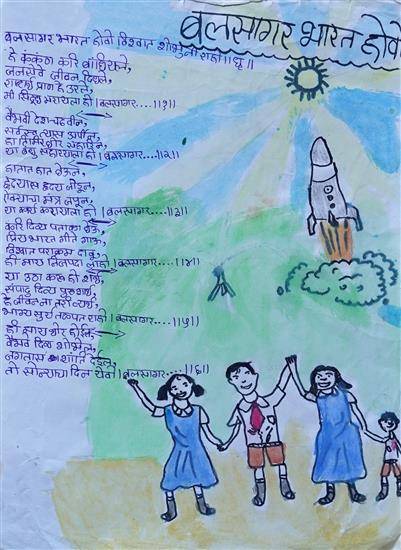 बलसागर भारत होवो
बलसागर भारत होवो विश्वात शोभुनी राहो ॥धृ॥
हे कंकण करि बांधियले,
जनसेवे जीवन दिधले,
राष्ट्रार्थ प्राण हे उरले,
मी सिद्ध मरायाला हो।बलसागर....॥१॥
वैभवी देश चढवीन,
सर्वस्व त्यास अर्पीन,
हा तिमिर घोर संहारिन,
या बंधु सहाय्याला हो।बलसागर....॥२॥
हातात हात घेऊन,
हृदयास हृदय जोडून,
ऐक्याचा मंत्र जपून,
या कार्य करायाला हो।बलसागर....॥३॥
करि दिव्य पताका घेऊ,
प्रिय भारत गीते गाऊ,
विश्वात पराक्रम दावू,
ही माय निजपदा लाहो।बलसागर....॥४॥
या उठा करू हो शर्थ,
संपादु दिव्य पुरुषार्थ,
हे जीवन ना तरी व्यर्थ,
भाग्य सूर्य तळपत राहो।बलसागर....॥५॥
ही माय थोर होईल,
वैभवे दिव्य शोभेल,
जगतास शांति देईल,
तो सोन्याचा दिन येवो।बलसागर....॥६॥